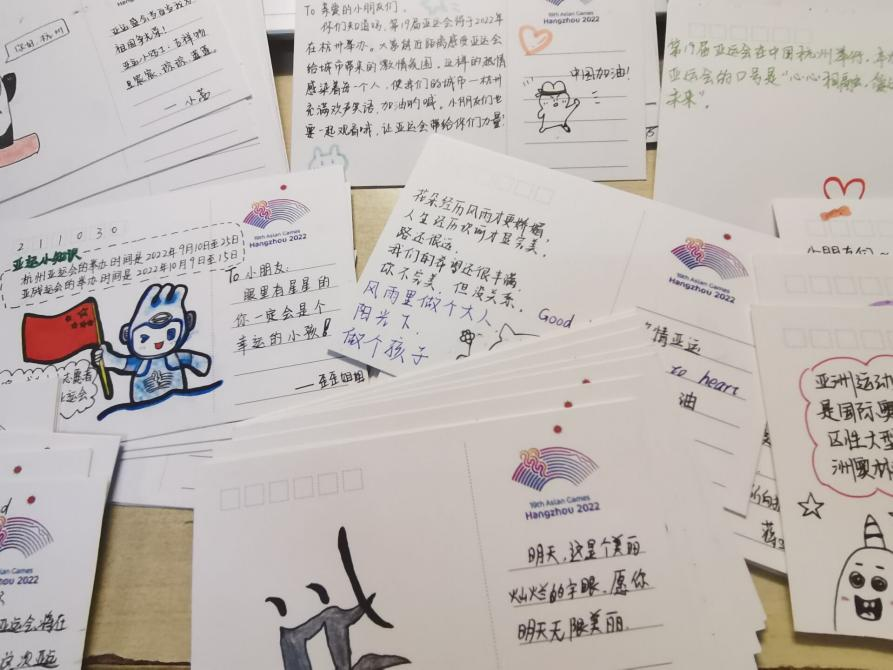 你好，杭州
祖国争光！
亚运小卫士：吉祥物
是宸宸、琮琮、莲莲。
一小茜
To 亲爱的小朋友们：
你们知道吗，第19届亚运会将于2022年
在杭州举办。大家能近距离感受亚运会
给城市带来的激情氛围。这样的热情
感染着每一个人，使我们的城市一杭州
充满欢声笑语，加油呐喊。小朋友们也
要一起观看哦，让亚运会带给你们力量！
19th Asian Games
Hangzhou 2022
中国加油！
第19届亚运会在中国杭州举行，
亚运会的口号是“心心相融，
未来”。
小朋友们～
211030
亚运小知识
杭州亚运会的举办时间是2022年9月10日至25日
亚残运会的举办时间是2022年10月9日至15日
志愿者
19th Asian Games
Hangzhou 2022
To 小朋友：
眼里有星星的
你一定会是个
幸运的小孩！
——歪歪姐姐
花朵经历风雨才更娇媚，
人生经历坎坷才显完美。
路还很远，
我们的希望还很丰满，
你不完美，但没关系。Good
风雨里做个大人
阳光下，
做个孩子
19th Asian Games
Hangzhou 2022
情亚运
to heart
油
亚洲运动
是国际奥
区性大型
洲奥林
19th Asian Games
Hangzhou 2022
明天，这是个美丽
灿烂的字眼，愿你
明天无限美丽.
Games
Hangzhou 2022
亚运会将在
这次亚运